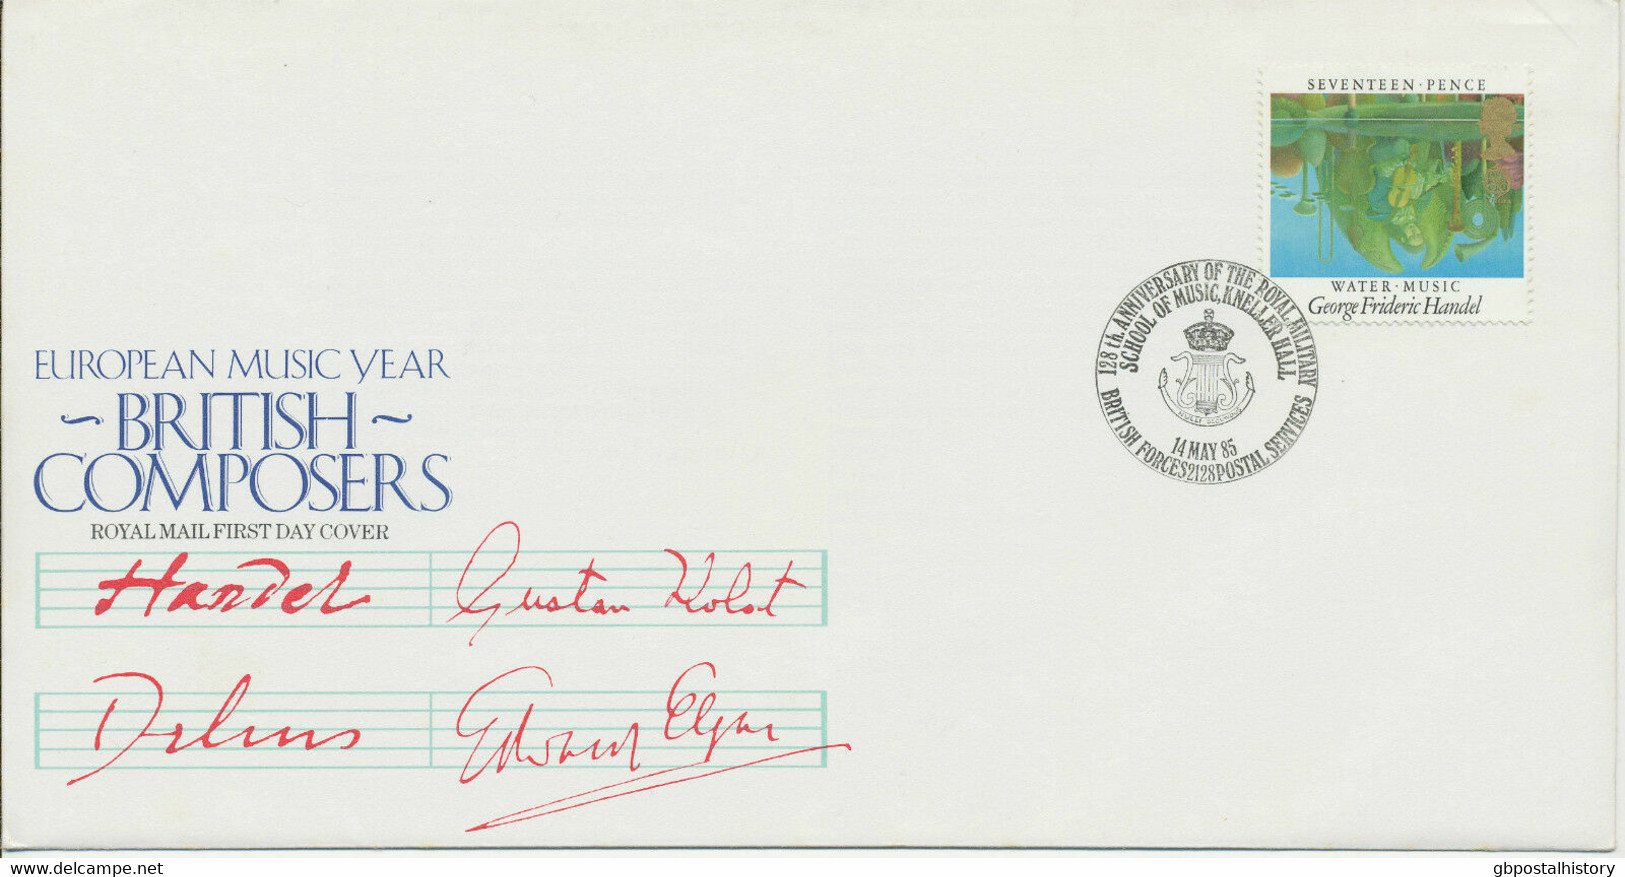 SEVENTEEN · PENCE
WATER · MUSIC
George Frideric Handel
128th. ANNIVERSARY OF THE ROYAL MILITARY
SCHOOL OF MUSIC, KNELLER HALL
14 MAY 85
BRITISH FORCES 2128 POSTAL SERVICES
EUROPEAN MUSIC YEAR
~ BRITISH ~
COMPOSERS
ROYAL MAIL FIRST DAY COVER
Handel
Gustav Holst
Delius
Edward Elgar
www.delcampe.net
gbpostalhistory